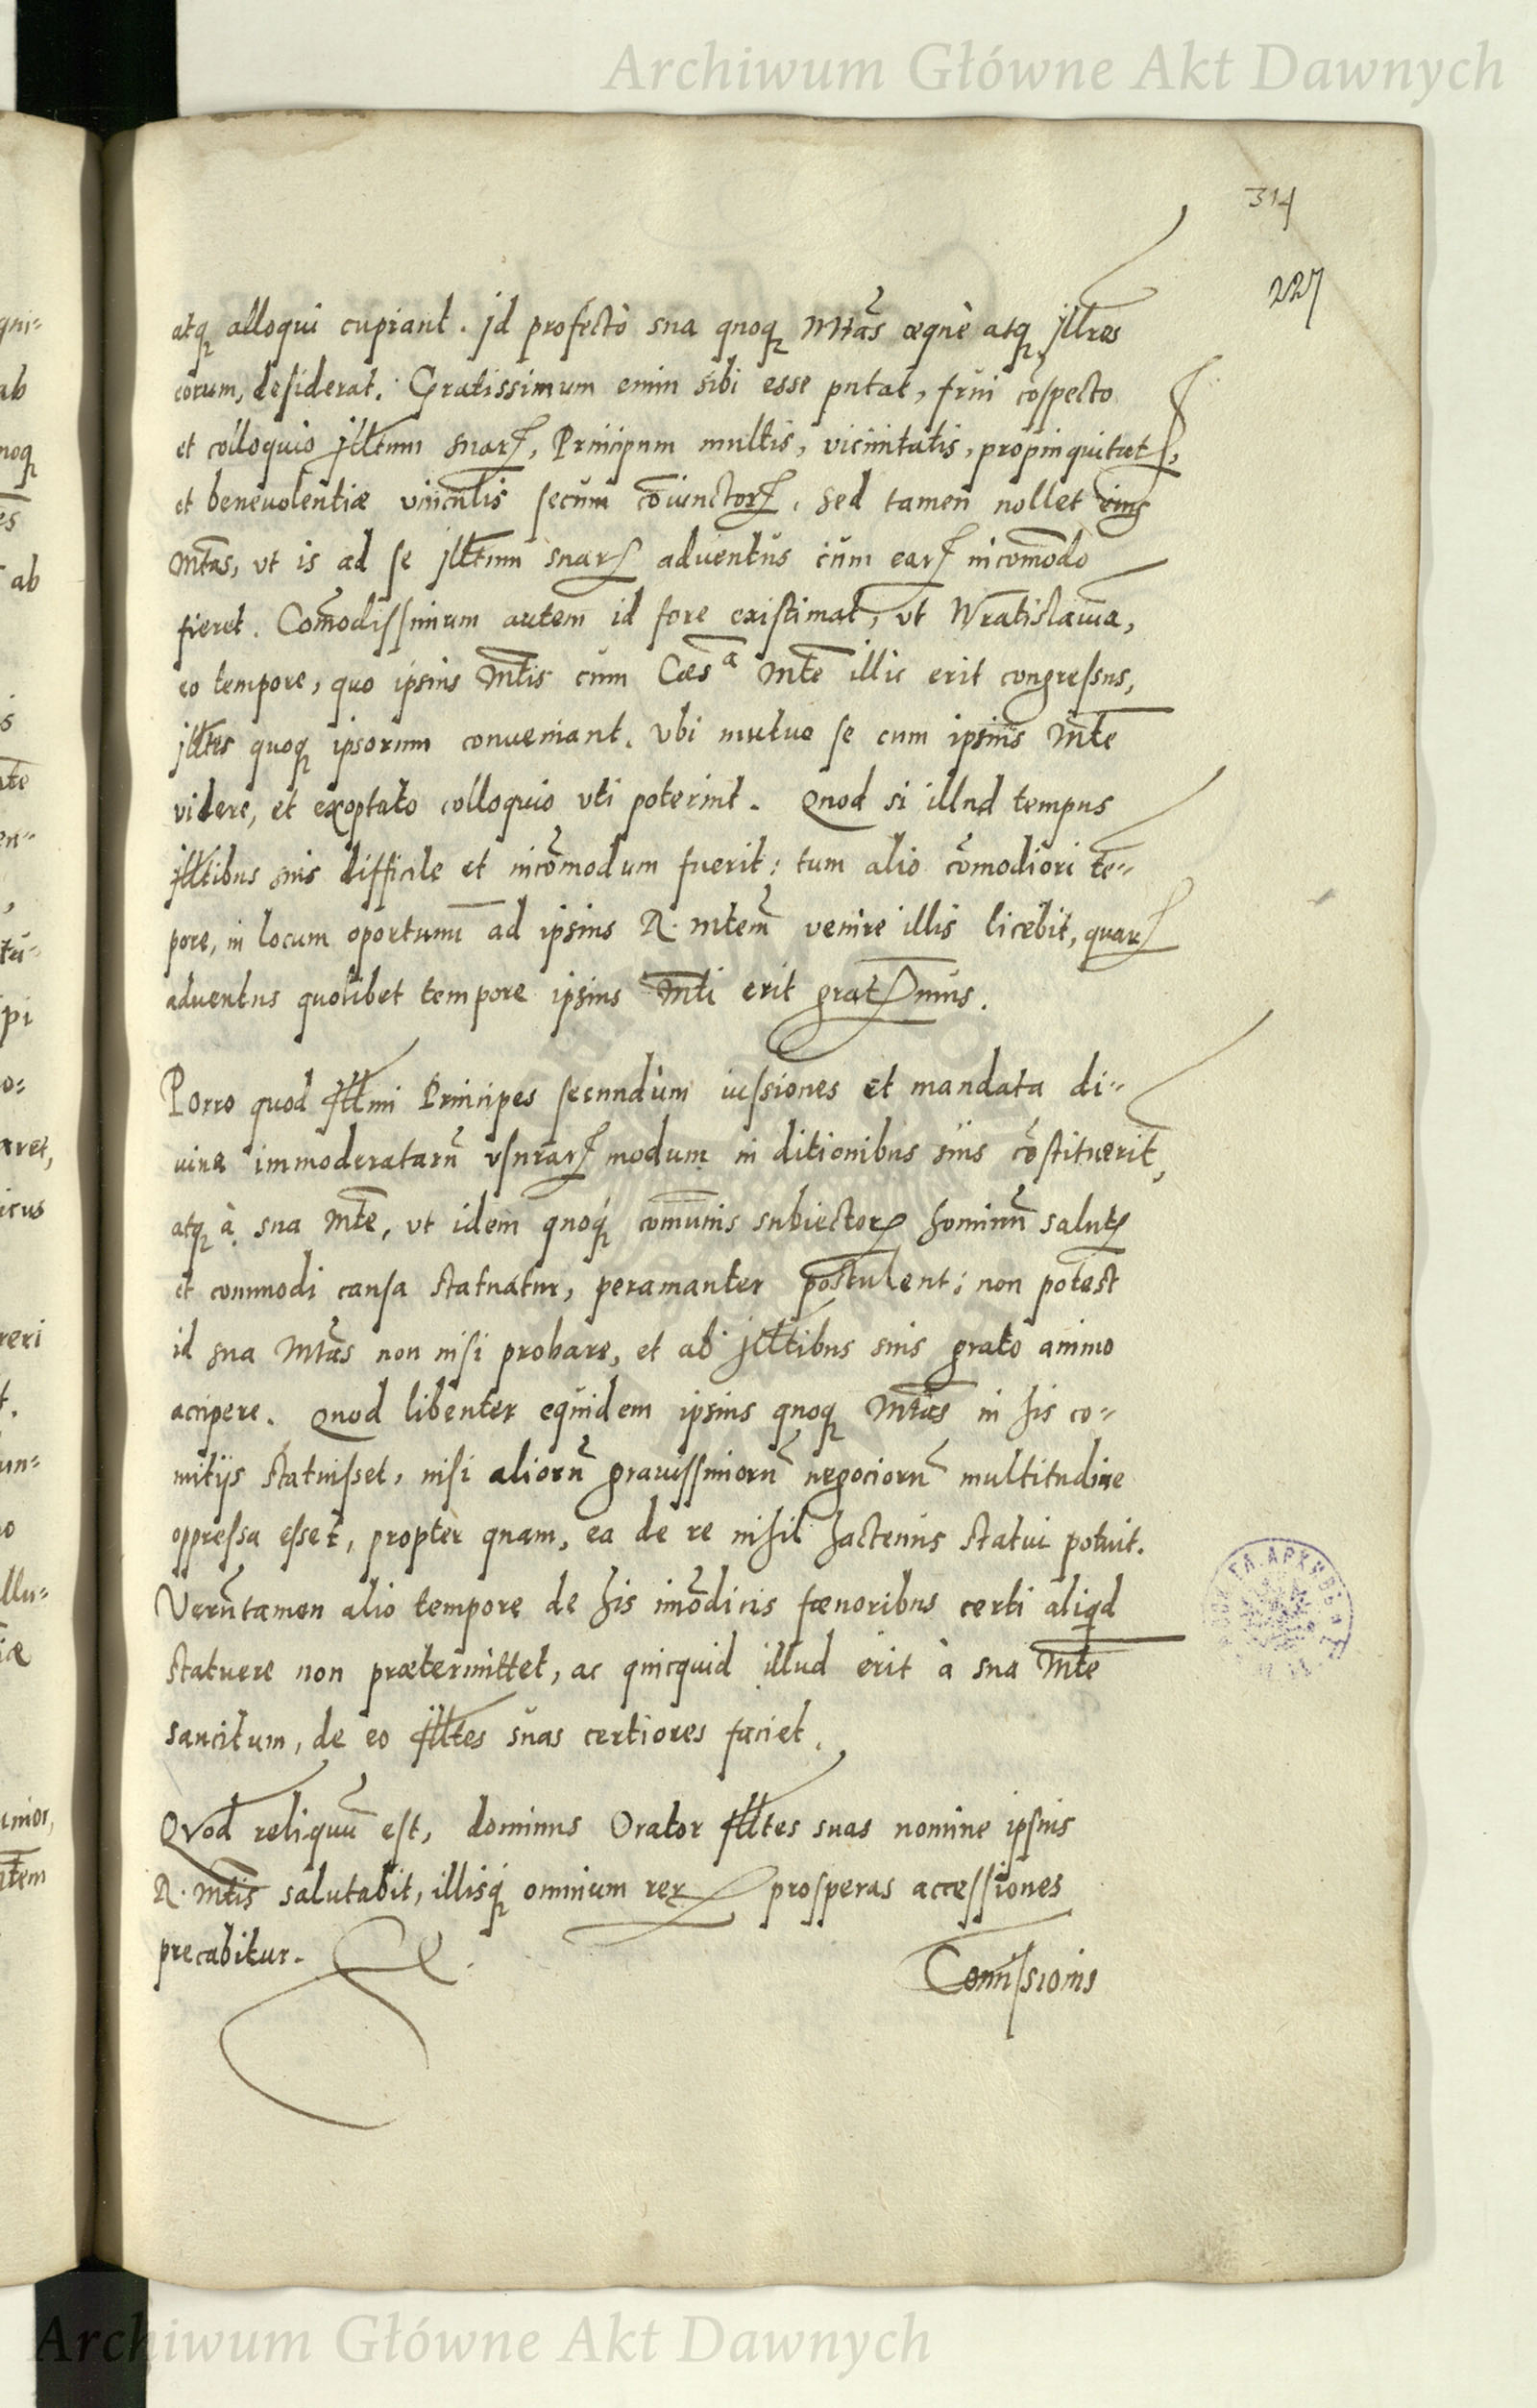 Archiwum Główne Akt Dawnych
314
227
atq, alloqui cupiant. Jd profectò sua quoq, Mtãs æquè atq, jlltes
eorum, desiderat. Gratissimum enim sibi esse putat, frui cõspectu
et colloquio jlltum suarꝝ, Principum multis, vicinitatis, propinquitatꝭ,
et benevolentiæ vinculis secum cõiunctorꝝ, sed tamen nollet eius
Mtãs, vt is ad se jlltum suarꝝ adventus cùm earꝝ incõmodo
fieret. Cõmodissimum autem id fore existimat, vt Wratislauiæ,
eo tempore, quo ipsius Mtis cùm Cæsᵃ Mte illic erit congressus,
jlltes quoq, ipsorum conueniant. Vbi mutuo se cum ipsius Mte
videre, et exoptato colloquio vti poterint. Quod si illud tempus
jlltibus suis difficile et incõmodum fuerit: tum alio cõmodiori tē-
pore, in locum oportunũ ad ipsius R. Mtem venire illis licebit, quarꝝ
adventus quolibet tempore ipsius Mti erit gratꝭmus.
Porro quod Jllmi Principes secundùm iussiones et mandata di-
uina immoderatarũ vsurarꝝ modum in ditionibus suis cõstituerīt,
atq, à sua Mte, vt idem quoq, comunis subiectorꝝ hominũ salutꝭ
et commodi causa statuatur, peramanter postulent: non potest
id sua Mtãs non nisi probare, et ab jlltibus suis grato animo
accipere. Quod libenter equidem ipsius quoq, Mtãs in his co-
mitijs statuisset, nisi aliorũ grauissimorũ negociorũ multitudine
oppressa esset, propter quam, ea de re nihil hactenus statui potuit.
Verũtamen alio tempore de his imõdicis fœnoribus certi aliqd
statuere non prætermittet, ac quicquid illud erit à sua Mte
sancitum, de eo Jlltes suas certiores faciet.
Quod reliquũ est, dominus Orator Jlltes suas nomine ipsius
R. Mtis salutabit, illisq, omnium rerꝝ prosperas accessiones
precabitur.
Comissionis
Archiwum Główne Akt Dawnych